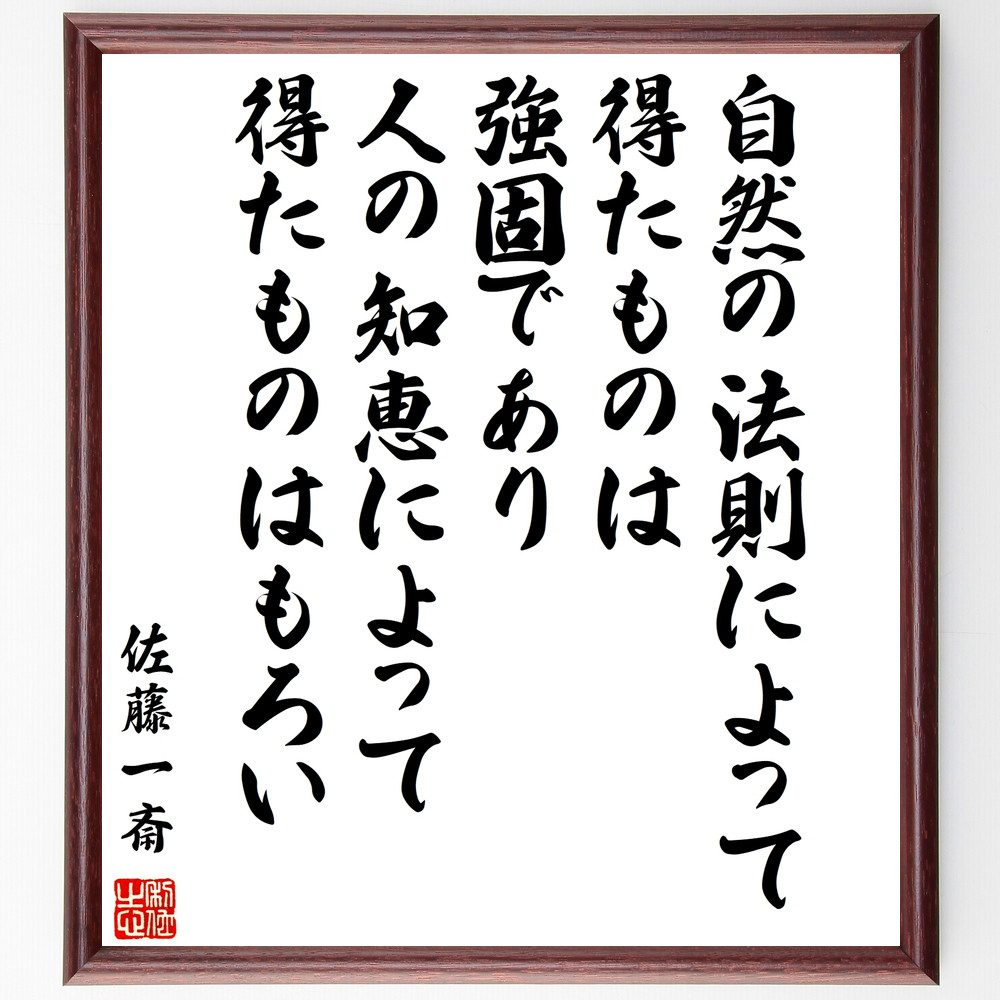 自然の法則によって
得たものは
強固であり
人の知恵によって
得たものはもろい
佐藤一斎